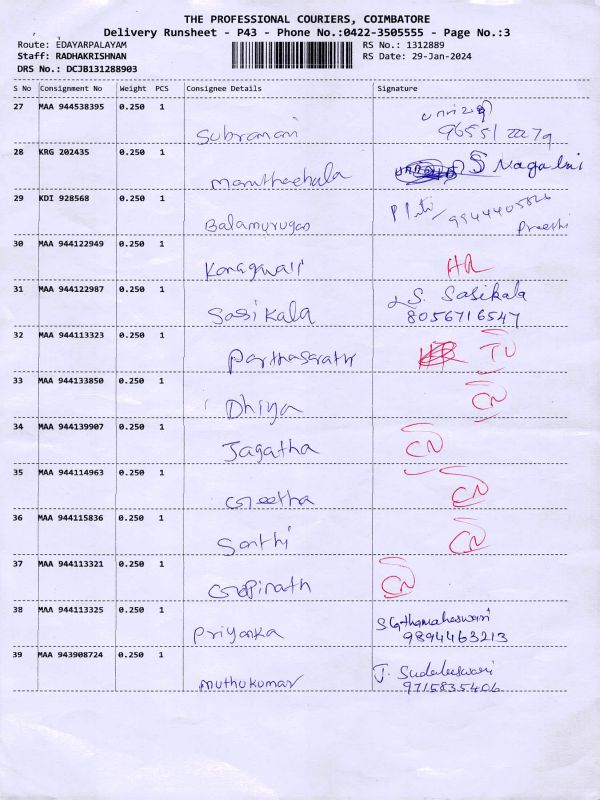 THE PROFESSIONAL COURIERS, COIMBATORE
Delivery Runsheet - P43 - Phone No.:0422-3505555 - Page No.:3
Route: EDAYARPALAYAM RS No.: 1312889
Staff: RADHAKRISHNAN RS Date: 29-Jan-2024
DRS No.: DCJB131288903
S No Consignment No Weight PCS Consignee Details Signature
27 MAA 944538395 0.250 1
Subramani 9655122279
28 KRG 202435 0.250 1 S Nagalni
29 KDI 928568 0.250 1
Balamurugan Preethi
30 MAA 944122949 0.250 1
HR
31 MAA 944122987 0.250 1 S. Sasikala
Sasikala 8056716547
32 MAA 944113323 0.250 1
Parthasarath
33 MAA 944133850 0.250 1
Dhiya CN
34 MAA 944139907 0.250 1
Jagatha CN
35 MAA 944114963 0.250 1
Geetha CN
36 MAA 944115836 0.250 1
Santhi CN
37 MAA 944113321 0.250 1
Gopinath CN
38 MAA 944113325 0.250 1
Priyanka 9894463213
39 MAA 943908724 0.250 1
Muthukumar 9715835406